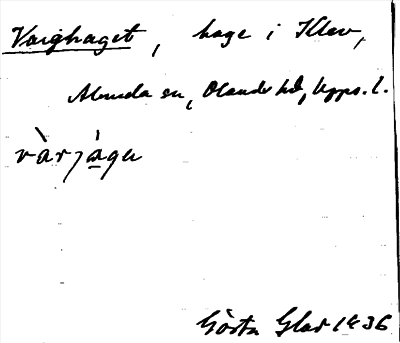 Varghaget, hage i Klev,
Almunda sn, Olands hd, Upps. l.
vàrjág̀u
Gösta Glad 1936